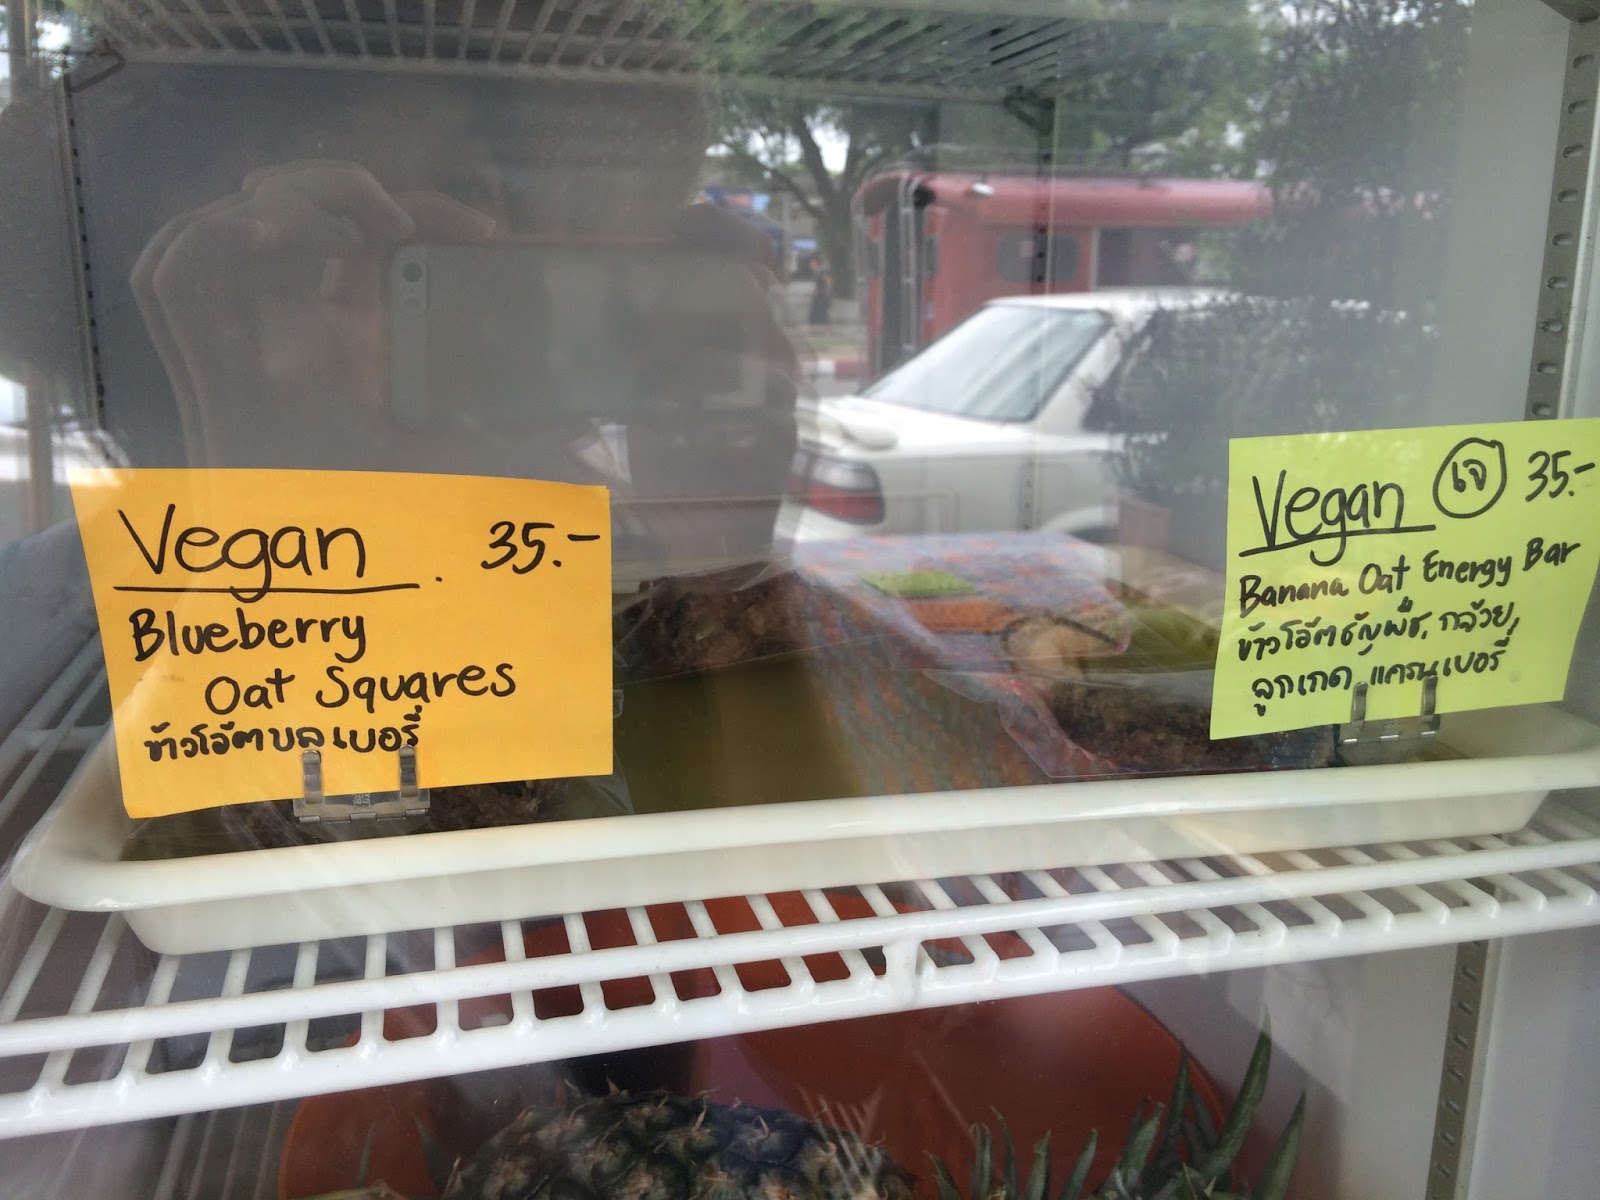 Vegan. 35.-
Blueberry
Oat Squares
ข้าวโอ๊ตบลูเบอรี่
Vegan เจ 35.-
Banana Oat Energy Bar
ข้าวโอ๊ตธัญพืช, กล้วย,
ลูกเกด, แครนเบอรี่